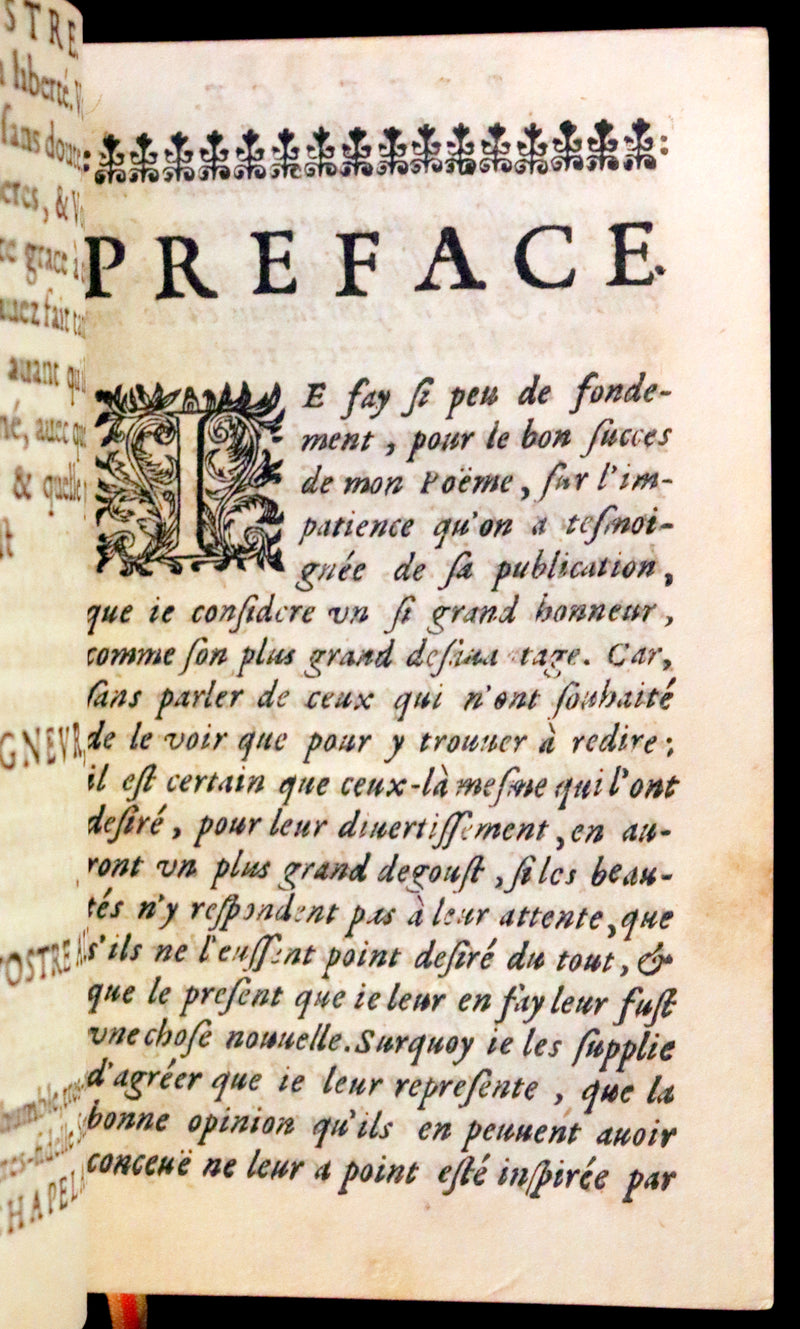 STRE.
liberté. V
sans doute
eres, & Vo
te grace à
auez fait tan
autant qu'il
né, auec qu
& quelle
st
GNEVR,
VOSTRE A
humble, tres-
res-fidelle Se
CHAPELA
PREFACE.
IE fay ſi peu de fonde-
ment, pour le bon ſucces
de mon Poëme, ſur l'im-
patience qu'on a teſmoi-
gnée de ſa publication,
que ie conſidere vn ſi grand honneur,
comme ſon plus grand deſauantage. Car,
ſans parler de ceux qui n'ont ſouhaité
de le voir que pour y trouuer à redire;
il eſt certain que ceux-là meſme qui l'ont
deſiré, pour leur diuertiſſement, en au-
ront vn plus grand degouſt, ſi les beau-
tés n'y reſpondent pas à leur attente, que
s'ils ne l'euſſent point deſiré du tout, &
que le preſent que ie leur en fay leur fuſt
vne choſe nouuelle. Surquoy ie les ſupplie
d'agréer que ie leur repreſente, que la
bonne opinion qu'ils en peuuent auoir
conceuë ne leur a point eſté inſpirée par